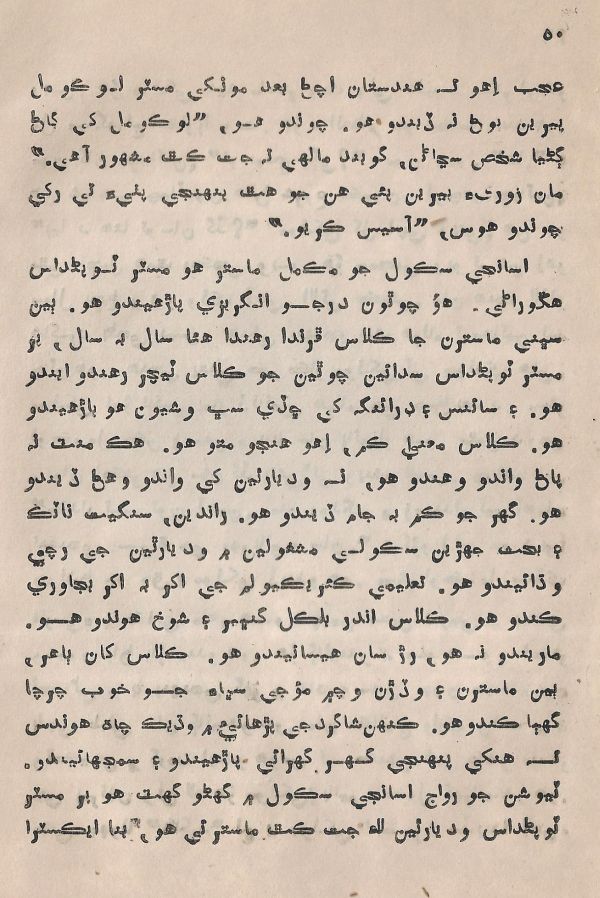 ٥٠
عجب اِهو تـ هندستان اچڻ بعد مونکي مسٽر لوڪومل
پيرين پوڻ نہ ڏيندو هو. چوندو هو، ”لوڪومل کي ڳاڻ
ڳڻيا شخص سڃاڻن، گوبند مالهي تہ جت ڪٿ مشهور آهي.“
مان زوريءَ پيرين پئي هن جو هٿ پنهنجي پٺيءَ تي رکي
چوندو هوس، ”آسيس ڪريو.“
اسانجي سڪول جو مڪمل ماستر هو مسٽر ٽوپڻداس
هڱوراڻي. هوُ چوٿون درجـو انگريزي پاڙهيندو هو. ٻين
سڀني ماسترن جا ڪلاس ڦرندا رهندا هئا سال بہ سال، پر
مسٽر ٽوپڻداس سدائين چوٿين جو ڪلاس ٽيچر رهندو ايندو
هو. ۽ سائنس ۽ ڊرائنگ کي ڇڏي سڀ وشيون هو پاڙهيندو
هو. ڪلاس معنيٰ ڪم، اِهو هنجو متو هو. هڪ منٽ نہ
پاڻ واندو وهندو هو، نـ وديارٿين کي واندو وهڻ ڏيندو
هو. گهر جو ڪم بہ جام ڏيندو هو. راندين، سنگيت ناٽڪ
۽ بحث جهڙين سڪولـي مشغولين ۾ وديارٿين جي رچي
وڌائيندو هو. تعليمي ڪئريڪيولم جي اکر بہ اکر بجاوري
ڪندو هو. ڪلاس اندر بلڪل گنڀير ۽ شوخ هوندو هـو.
ماريندو نہ هو، رڙ سان هيسائيندو هو. ڪلاس کان ٻاهر،
ٻين ماسترن ۽ وڏڙن وچ۾ مؤجي سڀاءَ جـو خوب چرچا
گهٻا ڪندوهو. ڪنهن شاگردجي پڙهائيءَ۾ وڌيڪ چاه هوندس
تـ هنکي پنهنجي گـهـر گهرائي پاڙهيندو ۽ سمجهائيندو.
ٽيوشن جو رواج اسانجي سڪول ۾ گهڻو گهٽ هو پر مسٽر
ٽوپڻداس وديارٿين لاءِ جت ڪٿ ماستر ئي هو، بنا ايڪسٽرا